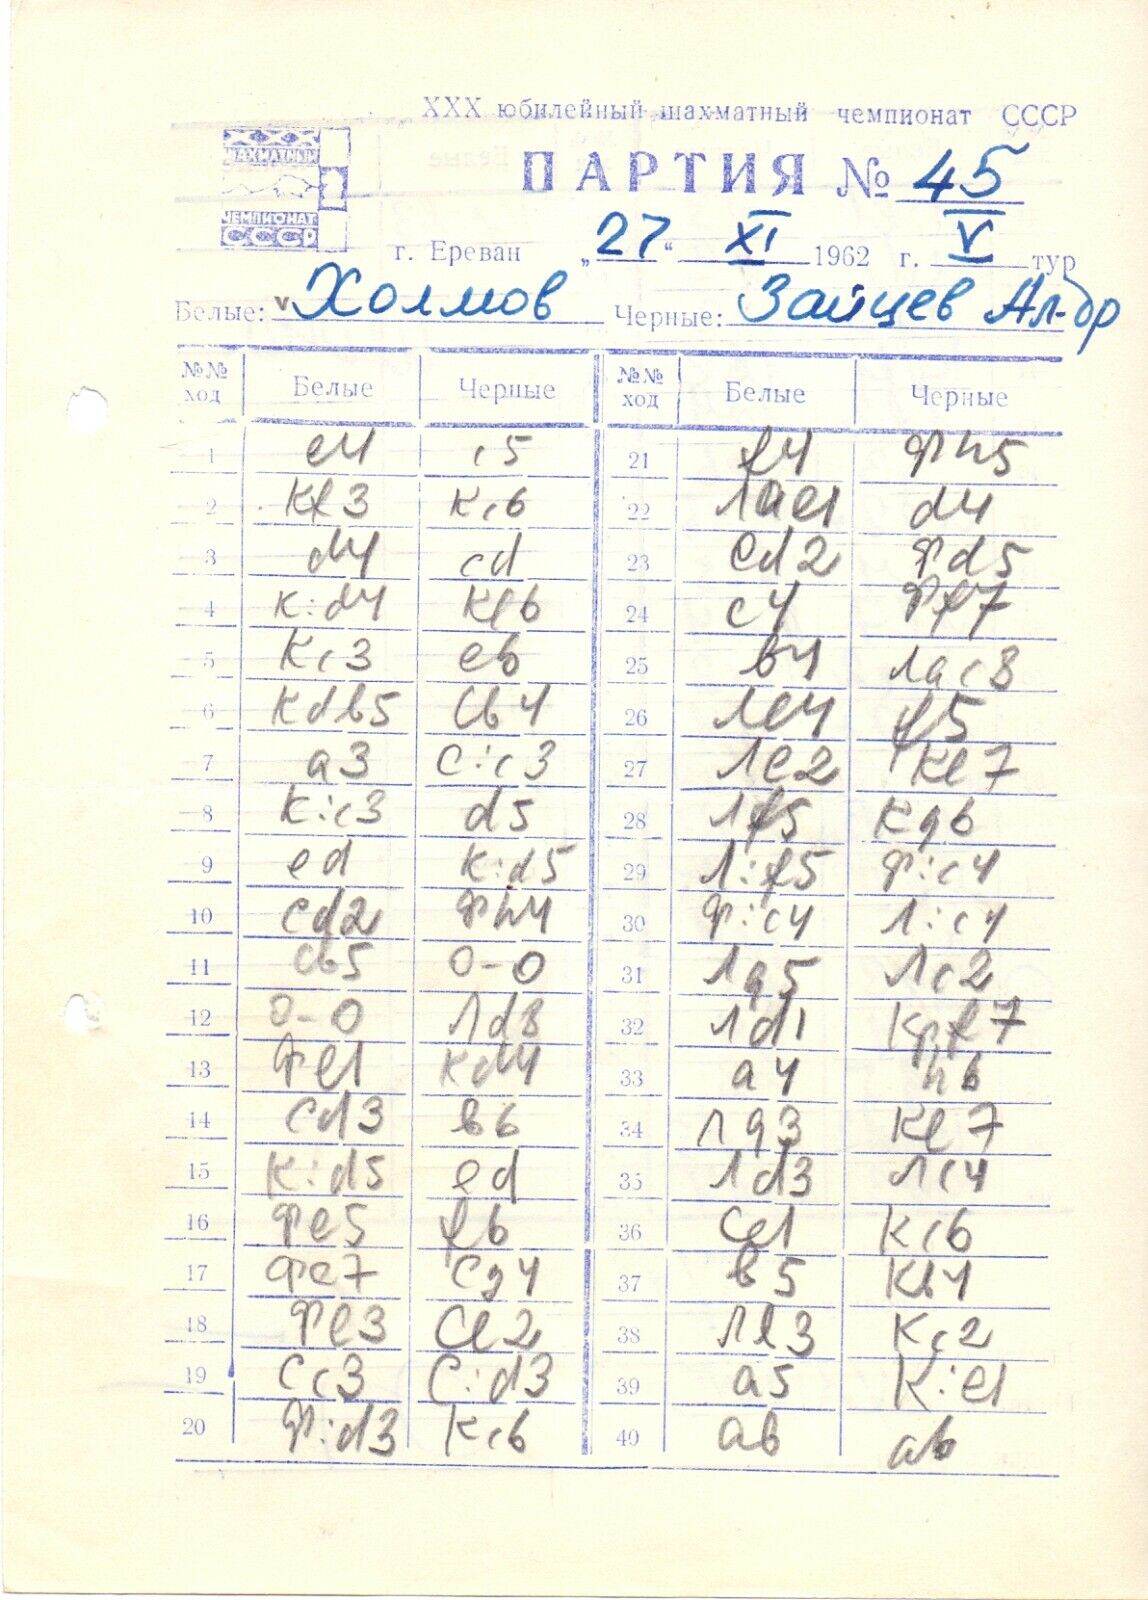 XXX юбилейный шахматный чемпионат СССР
ШАХМАТНЫЙ
ЧЕМПИОНАТ
СССР
ПАРТИЯ № 45
г. Ереван „27“ XI 1962 г. V тур
Белые: v Холмов Черные: Зайцев Ал-др
№№ ход Белые Черные №№ ход Белые Черные
1 e4 c5 21 f4 Фh5
2 Кf3 Кc6 22 Лae1 d4
3 d4 cd 23 Cd2 Фd5
4 К:d4 Кf6 24 c4 Фf7
5 Кc3 e6 25 в4 Лac8
6 Кdв5 Cв4 26 Лe4 f5
7 a3 C:c3 27 Лe2 Кe7
8 К:c3 d5 28 Лf5 Кg6
9 ed К:d5 29 Л:f5 Ф:c4
10 Cd2 Фh4 30 Ф:c4 Л:c4
11 Cв5 0-0 31 Лg5 Лc2
12 0-0 Лd8 32 Лd1 Крf7
13 Фe1 Кd4 33 a4 h6
14 Cd3 в6 34 Лg3 Кe7
15 К:d5 ed 35 Лd3 Лc4
16 Фe5 f6 36 Ce1 Кc6
17 Фc7 Cg4 37 в5 Кв4
18 Фf3 Ce2 38 Лf3 Кc2
19 Cc3 C:d3 39 a5 К:e1
20 Ф:d3 Кc6 40 aв aв